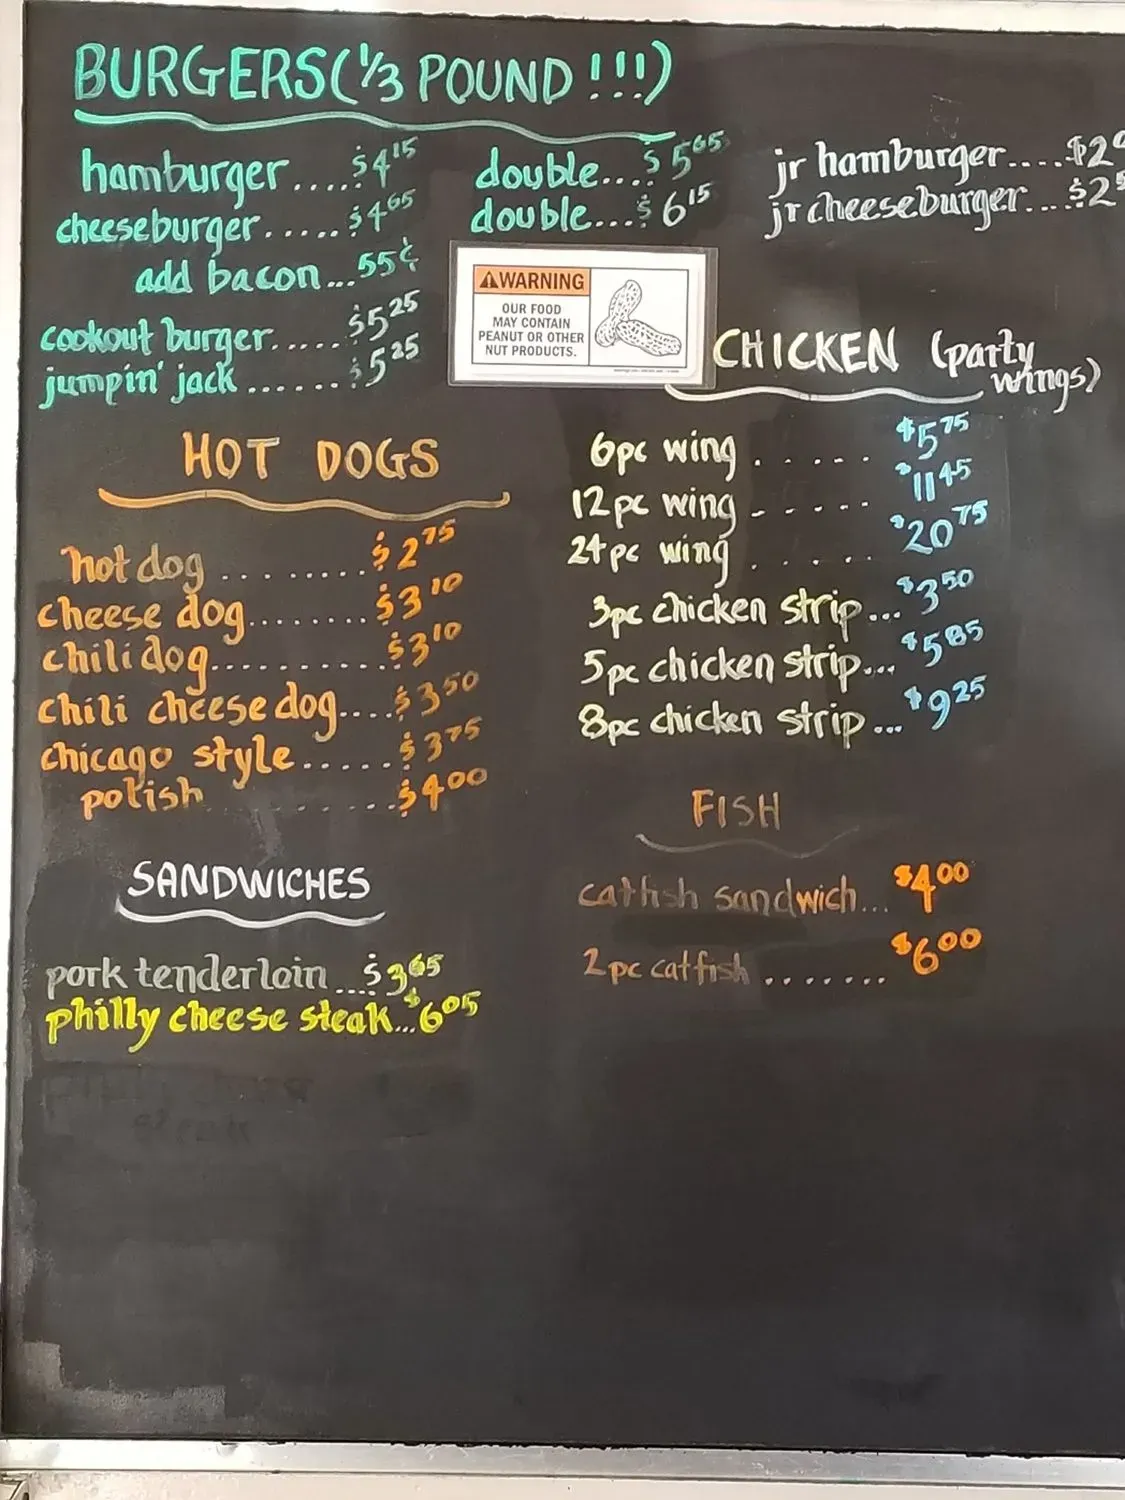 BURGERS(1/3 POUND!!!)
hamburger....$4.15 double...$5.65 jr hamburger....$2
cheeseburger.....$4.65 double...$6.15 jr cheeseburger....$2
add bacon...55¢
cookout burger.....$5.25
jumpin' jack......$5.25
WARNING
OUR FOOD
MAY CONTAIN
PEANUT OR OTHER
NUT PRODUCTS.
CHICKEN (party
wings)
6pc wing.....$5.75
12pc wing-----$11.45
24pc wing....$20.75
3pc chicken strip...$3.50
5pc chicken strip...$5.85
8pc chicken strip...$9.25
HOT DOGS
hot dog........$2.75
cheese dog........$3.10
chili dog...........$3.10
chili cheese dog....$3.50
chicago style......$3.75
polish.........$4.00
FISH
catfish sandwich...$4.00
2pc catfish.......$6.00
SANDWICHES
pork tenderloin...$3.65
philly cheese steak...$6.05